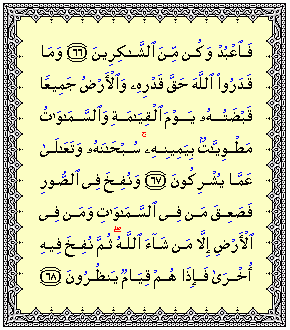 فَٱعْبُدْ وَكُن مِّنَ ٱلشَّـٰكِرِينَ ﴿٦٦﴾ وَمَا
قَدَرُوا۟ ٱللَّهَ حَقَّ قَدْرِهِۦ وَٱلْأَرْضُ جَمِيعًا
قَبْضَتُهُۥ يَوْمَ ٱلْقِيَـٰمَةِ وَٱلسَّمَـٰوَٰتُ
مَطْوِيَّـٰتٌۢ بِيَمِينِهِۦ ۚ سُبْحَـٰنَهُۥ وَتَعَـٰلَىٰ
عَمَّا يُشْرِكُونَ ﴿٦٧﴾ وَنُفِخَ فِى ٱلصُّورِ
فَصَعِقَ مَن فِى ٱلسَّمَـٰوَٰتِ وَمَن فِى
ٱلْأَرْضِ إِلَّا مَن شَآءَ ٱللَّهُ ۖ ثُمَّ نُفِخَ فِيهِ
أُخْرَىٰ فَإِذَا هُمْ قِيَامٌ يَنظُرُونَ ﴿٦٨﴾